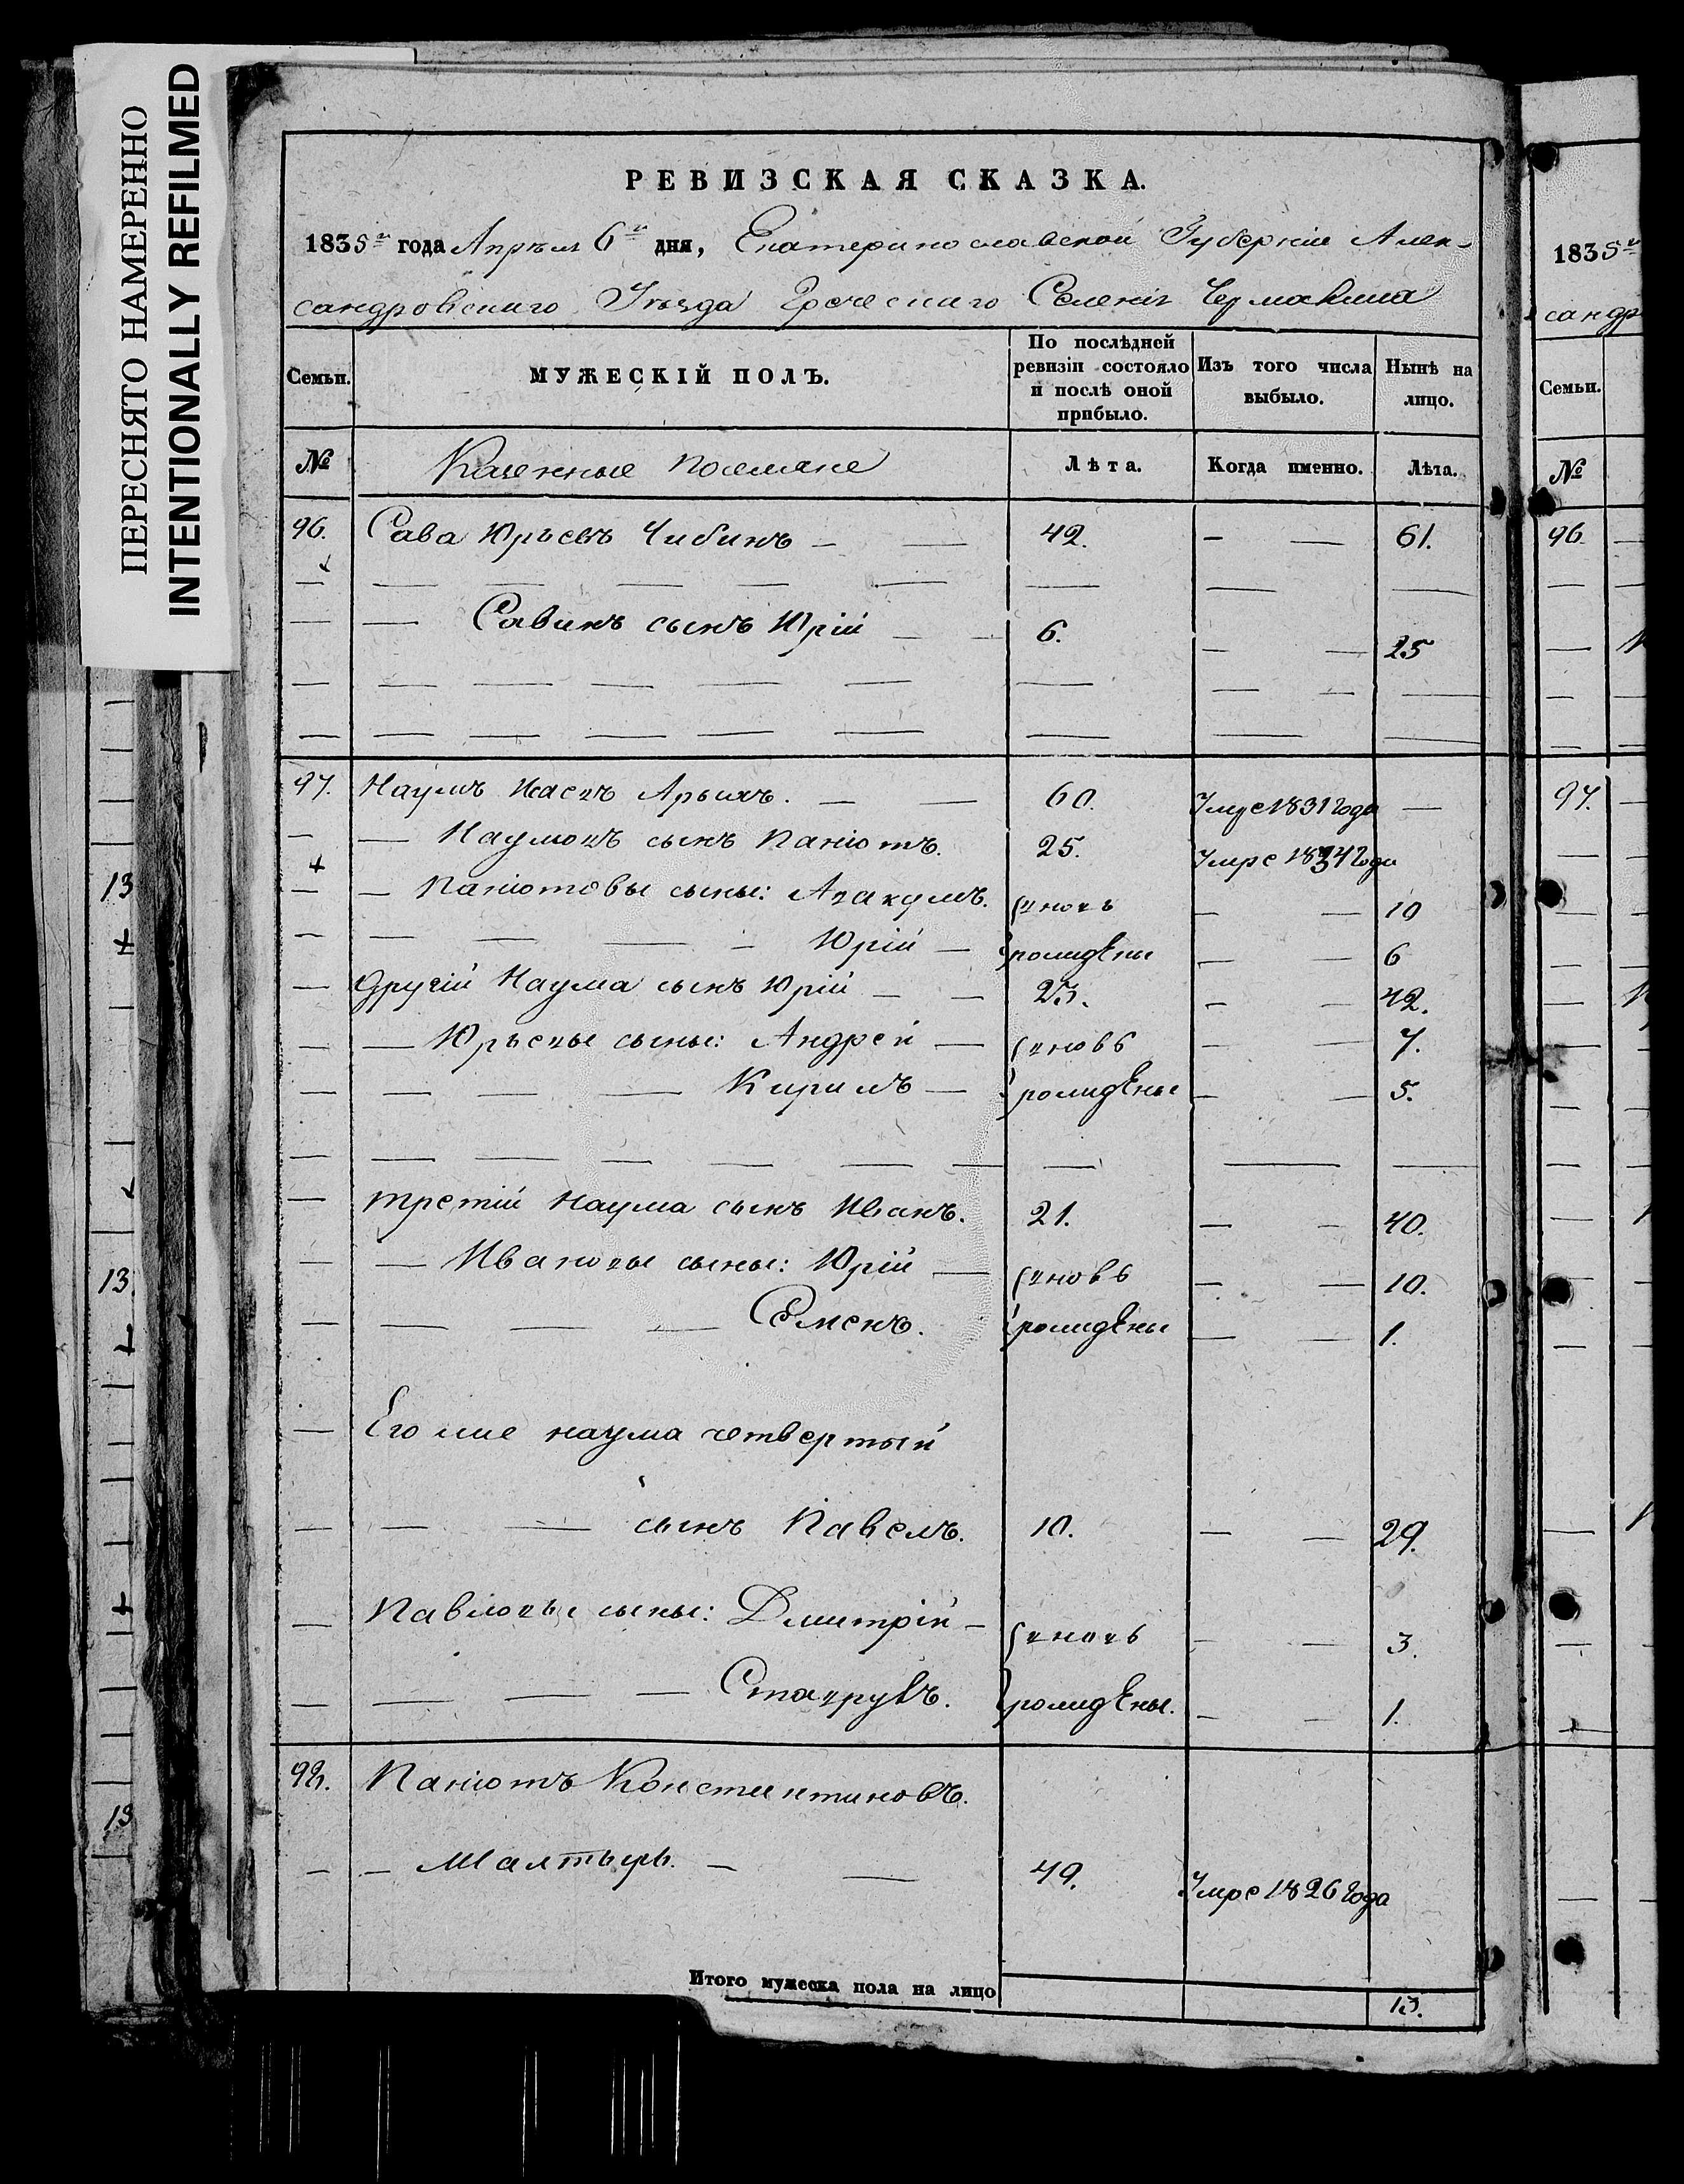 ПЕРЕСНЯТО НАМЕРЕННО
INTENTIONALLY REFILMED
РЕВИЗСКАЯ СКАЗКА.
1835го года Апрѣля 6го дня, Екатеринославской Губерніи Алек-
сандровскаго Уѣзда Греческаго Селенія Чермалика
Семьи. МУЖЕСКІЙ ПОЛЪ. По послѣдней ревизіи состояло и послѣ оной прибыло. Изъ того числа выбыло. Нынѣ на лицо.
№ Казенные поселяне Лѣта. Когда именно. Лѣта.
96. Сава Юрьевъ Чибинъ — — 42. — — 61.
— — Савинъ сынъ Юрій — — 6. — — 25
97. Наумъ Арыхъ. — — 60. Умре 1831 года —
— — Наумовъ сынъ Паніотъ. 25. Умре 1834 года
— — Паніотовы сыны: Авакумъ. вновь — — 10
— — — — — Юрій — рожденые — — 6
— Другій Наума сынъ Юрій — — 23. — — 42.
— — Юрьевы сыны: Андрей — вновь — — 7.
— — — — Кирилъ — рожденые — — 5.
— третій Наума сынъ Иванъ. 21. — — 40.
— — Ивановы сыны: Юрій — вновь — — 10.
— — — — Семенъ. рожденые — — 1.
— Его же наума четвертый
— — — сынъ Павелъ. 10. — — 29.
— Павловы сыны: Дмитрій — вновь — — 3.
— — — — Ставрувъ. рожденые. — — 1.
98. Паніотъ Констинтиновъ.
— — Шалтырь. — — 49. Умре 1826 года
Итого мужеска пола на лицо 13.
1835го
сандр
Семьи.
№
96
97.
13
13.
13